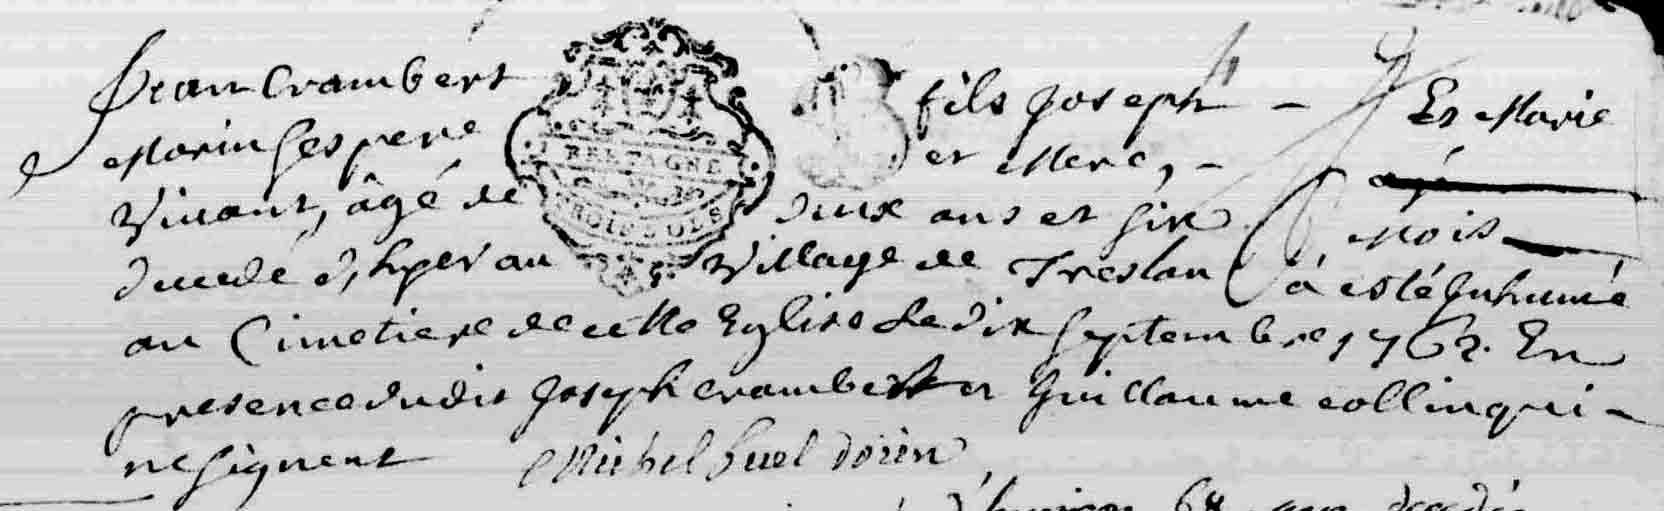 Jean Crambert fils Joseph - Et Marie
Morin ses pere et Mere, -
BRETAGNE
Vivant, âgé de deux ans et six mois
decedé d'hyer au village de Treslan à esté Inhumé
au Cimetiere de cette Eglise Le dix septembre 1762. En
presence dudit Joseph Crambert et Guillaume collin qui -
ne signent Michel